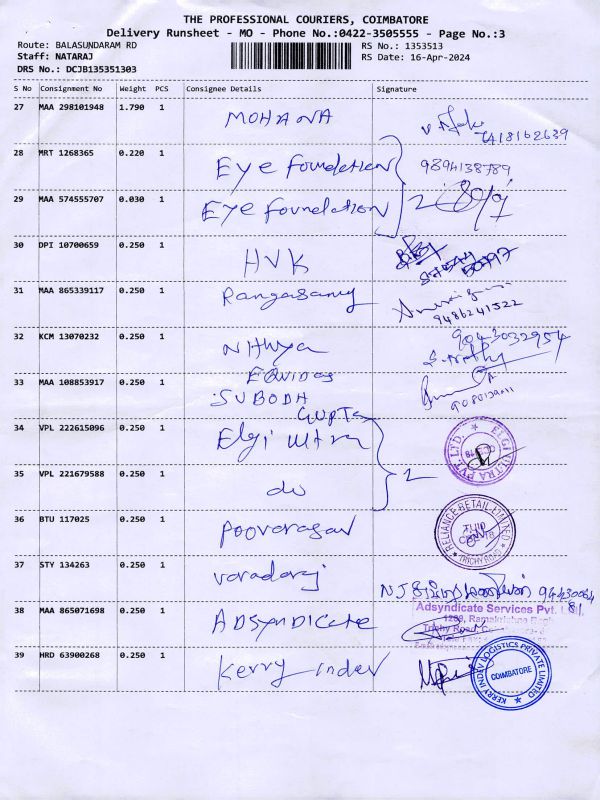 THE PROFESSIONAL COURIERS, COIMBATORE
Delivery Runsheet - MO - Phone No.:0422-3505555 - Page No.:3
Route: BALASUNDARAM RD
RS No.: 1353513
Staff: NATARAJ
RS Date: 16-Apr-2024
DRS No.: DCJB135351303
S No Consignment No Weight PCS Consignee Details Signature
27 MAA 298101948 1.790 1 MOHANA
28 MRT 1268365 0.220 1 Eye foundation 9894138789
29 MAA 574555707 0.030 1 Eye foundation 2
30 DPI 10700659 0.250 1 HVK
31 MAA 865339117 0.250 1 Rangasamy
9486241522
32 KCM 13070232 0.250 1 Nithya 9043032954
33 MAA 108853917 0.250 1 SUBODH
GUPTA
34 VPL 222615096 0.250 1 Elgi ultra
ELGI ULTRA PVT. LTD.
35 VPL 221679588 0.250 1 do 2
36 BTU 117025 0.250 1 Poovarasan
RELIANCE RETAIL LIMITED
TRICHY ROAD
37 STY 134263 0.250 1 varadaraj
38 MAA 865071698 0.250 1 ADSYNDICATE
Adsyndicate Services Pvt. Ltd.
39 HRD 63900268 0.250 1 Kerry indev
KERRY INDEV LOGISTICS PRIVATE LIMITED
COIMBATORE